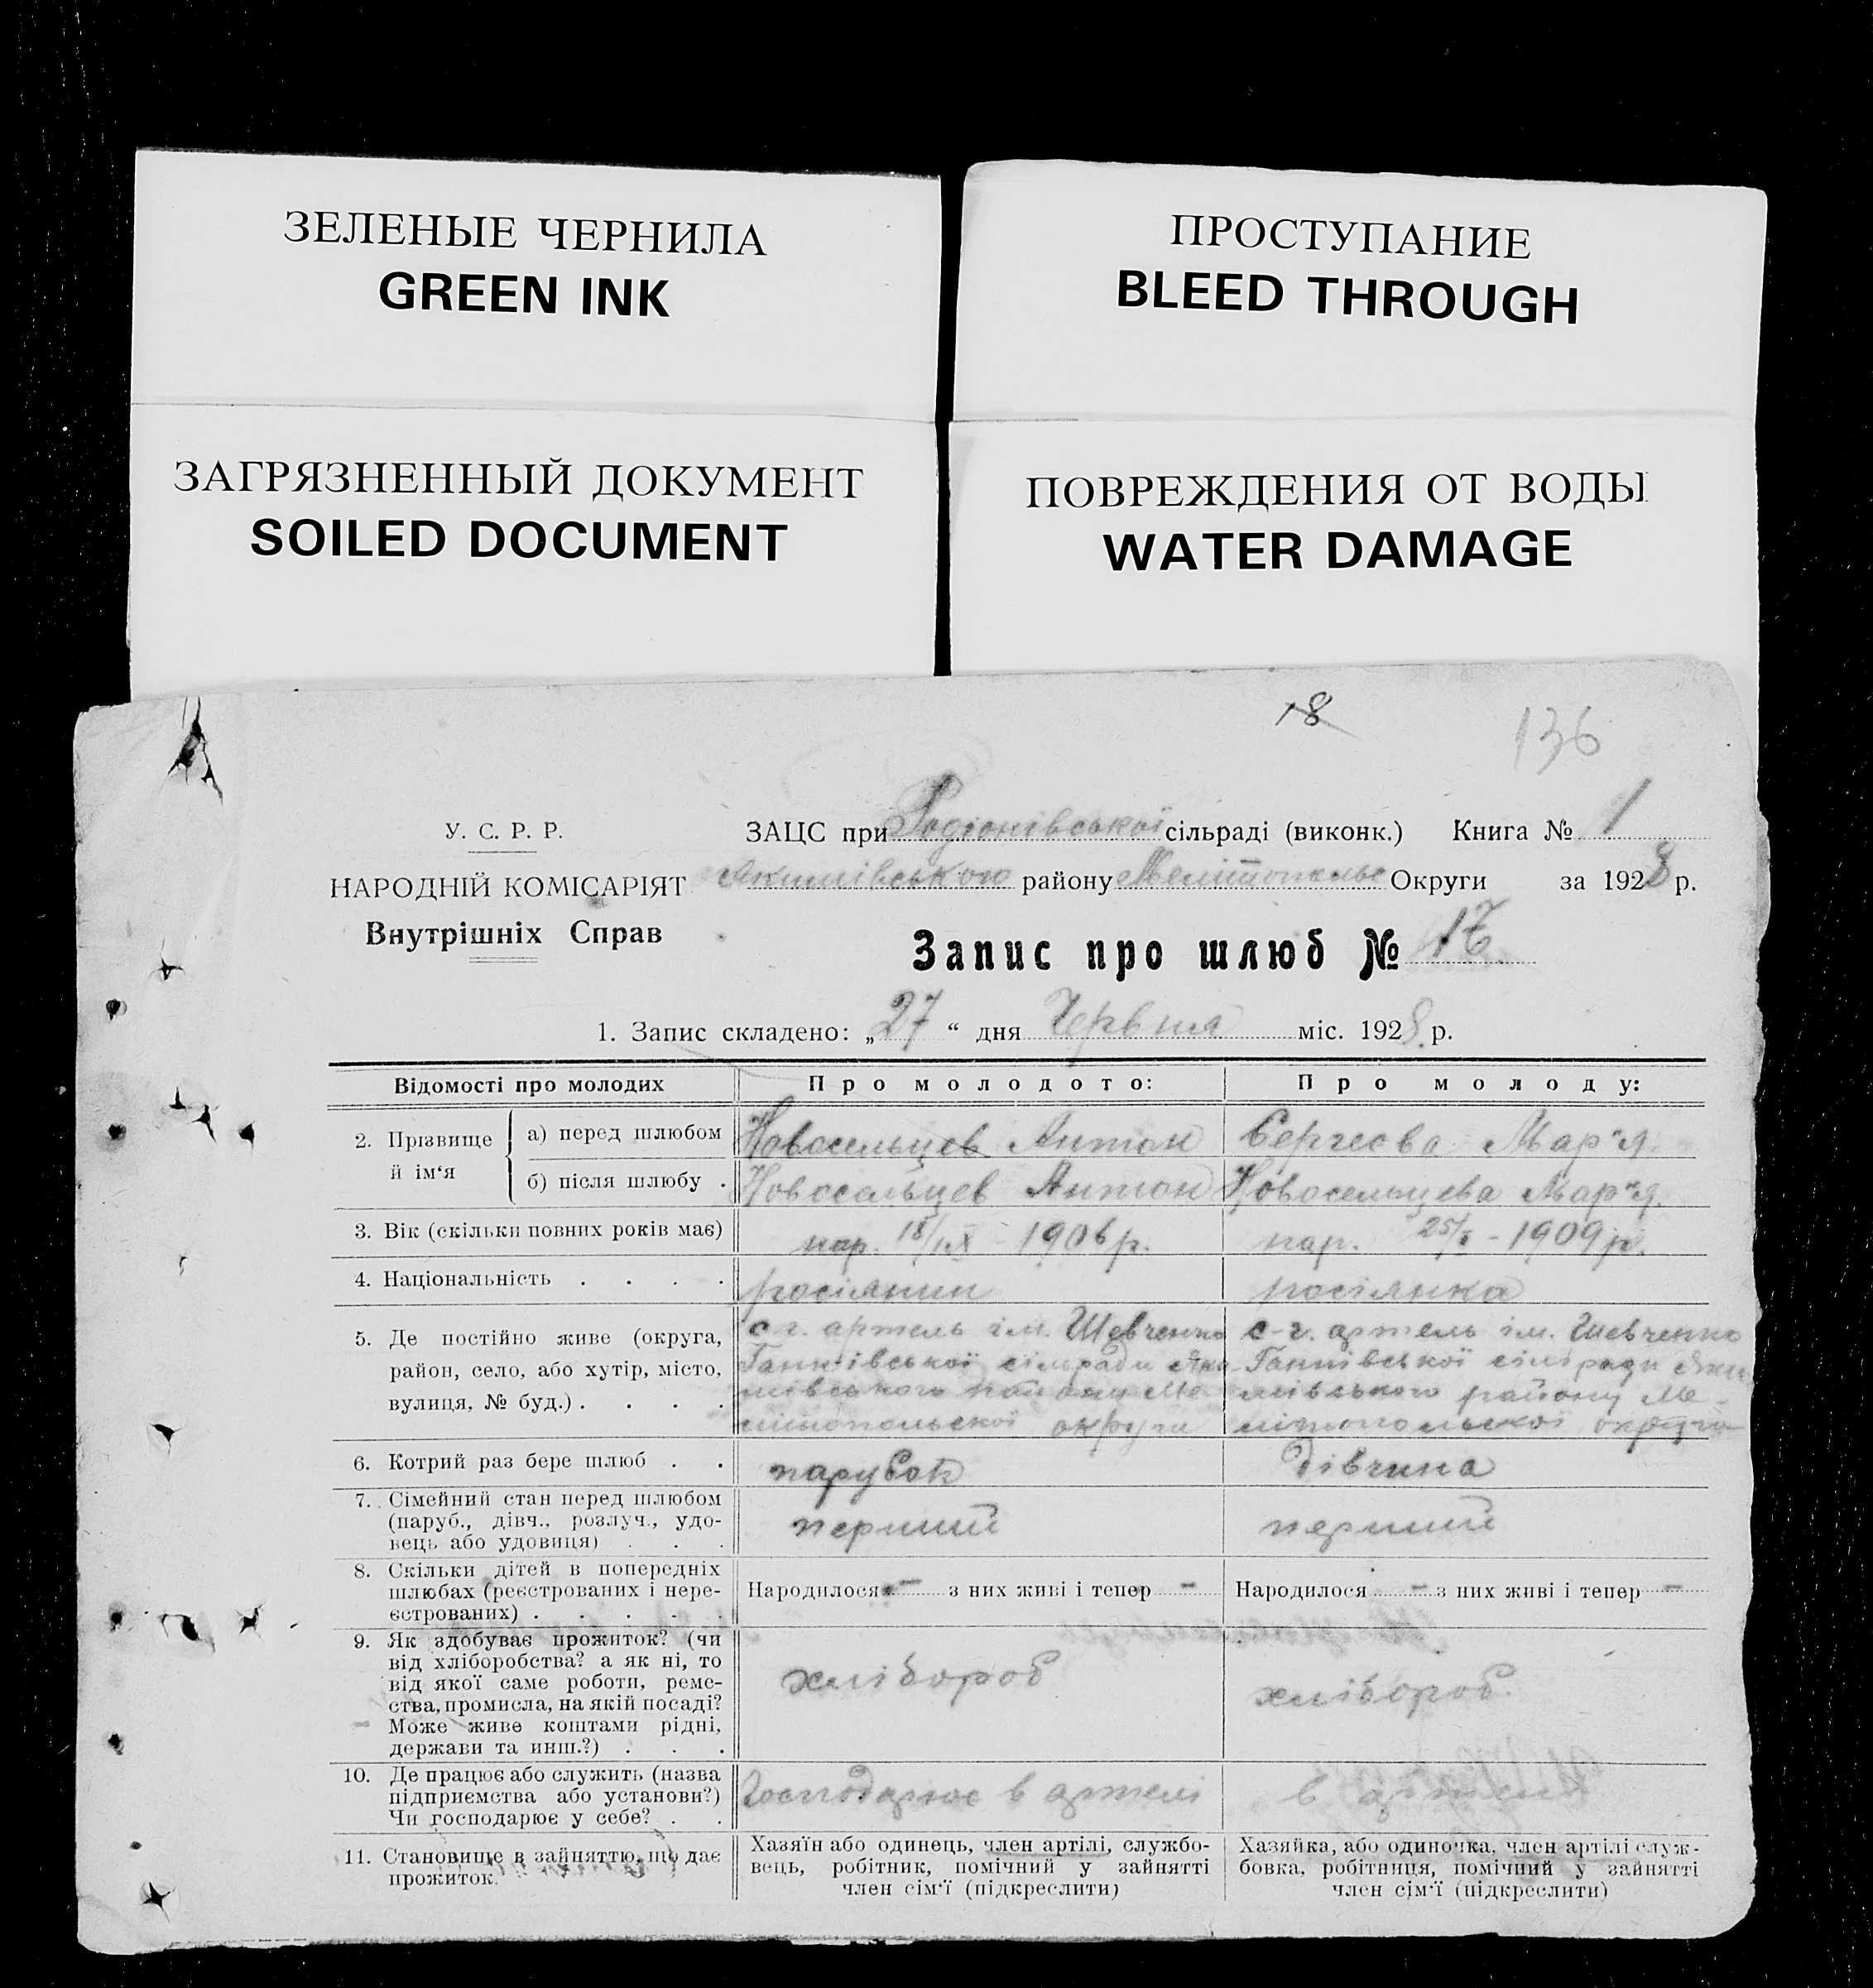 ЗЕЛЕНЫЕ ЧЕРНИЛА
GREEN INK
ПРОСТУПАНИЕ
BLEED THROUGH
ЗАГРЯЗНЕННЫЙ ДОКУМЕНТ
SOILED DOCUMENT
ПОВРЕЖДЕНИЯ ОТ ВОДЫ
WATER DAMAGE
18
136
У. С. Р. Р.
НАРОДНІЙ КОМІСАРІЯТ
Внутрішніх Справ
ЗАЦС при Родіонівської сільраді (виконк.) Книга № 1
Якимівською району Мелітопольс Округи за 1928 р.
Запис про шлюб №
1. Запис складено: „27“ дня Червня міс. 1928 р.
Відомості про молодих
Про молодого:
Про молоду:
2. Прізвище й ім‘я
а) перед шлюбом
Новосельцев Антон
Сергеєва Мар'я.
б) після шлюбу .
Новосельцев Антон
Новосельцева Мар'я.
3. Вік (скільки повних років має)
нар. 18/IX - 1906 р.
нар. 25/ - 1909 р.
4. Національність . . . .
росіянин
росіянка
5. Де постійно живе (округа,
район, село, або хутір, місто,
вулиця, № буд.) . . . .
с-г. артель ім. Шевченко
Ганнівської сільради Яки-
мівського району Ме-
літопольської округи
с-г. артель ім. Шевченко
Ганнівської сільради Яки
мівського району Ме-
літопольської округи
6. Котрий раз бере шлюб . .
парубок
дівчина
7. Сімейний стан перед шлюбом
(паруб., дівч., розлуч., удо-
вець або удовиця) . . .
перший
перший
8. Скільки дітей в попередніх
шлюбах (реєстрованих і нере-
єстрованих) . . . . .
Народилося - з них живі і тепер -
Народилося - з них живі і тепер -
9. Як здобуває прожиток? (чи
від хліборобства? а як ні, то
від якої саме роботи, реме-
ства, промисла, на якій посаді?
Може живе коштами рідні,
держави та инш.?) . . .
хлібороб
хлібороб.
10. Де працює або служить (назва
підприємства або установи?)
Чи господарює у себе? . .
Господарює в артелі
в артелі
11. Становище в зайняттю, що дає
прожиток.
Хазяїн або одинець, член артілі, службо-
вець, робітник, помічний у зайнятті
член сім‘ї (підкреслити)
Хазяйка, або одиночка, член артілі служ-
бовка, робітниця, помічний у зайнятті
член сім‘ї (підкреслити)